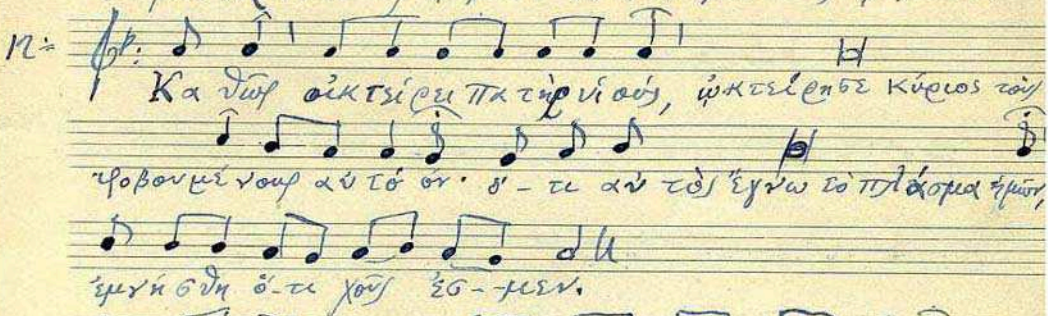 Κα θὼς οἰκτείρει πα τὴρ υἱ ούς, ᾠκτείρησε κύριος τοὺς
φοβουμέ νους αὐ τό όν· ὅ - τι αὐ τὸς ἔγνω τὸ πλάσμα ἡμῶν,
ἐμνή σθη ὅ - τι χοῦς ἐσ - - μεν.